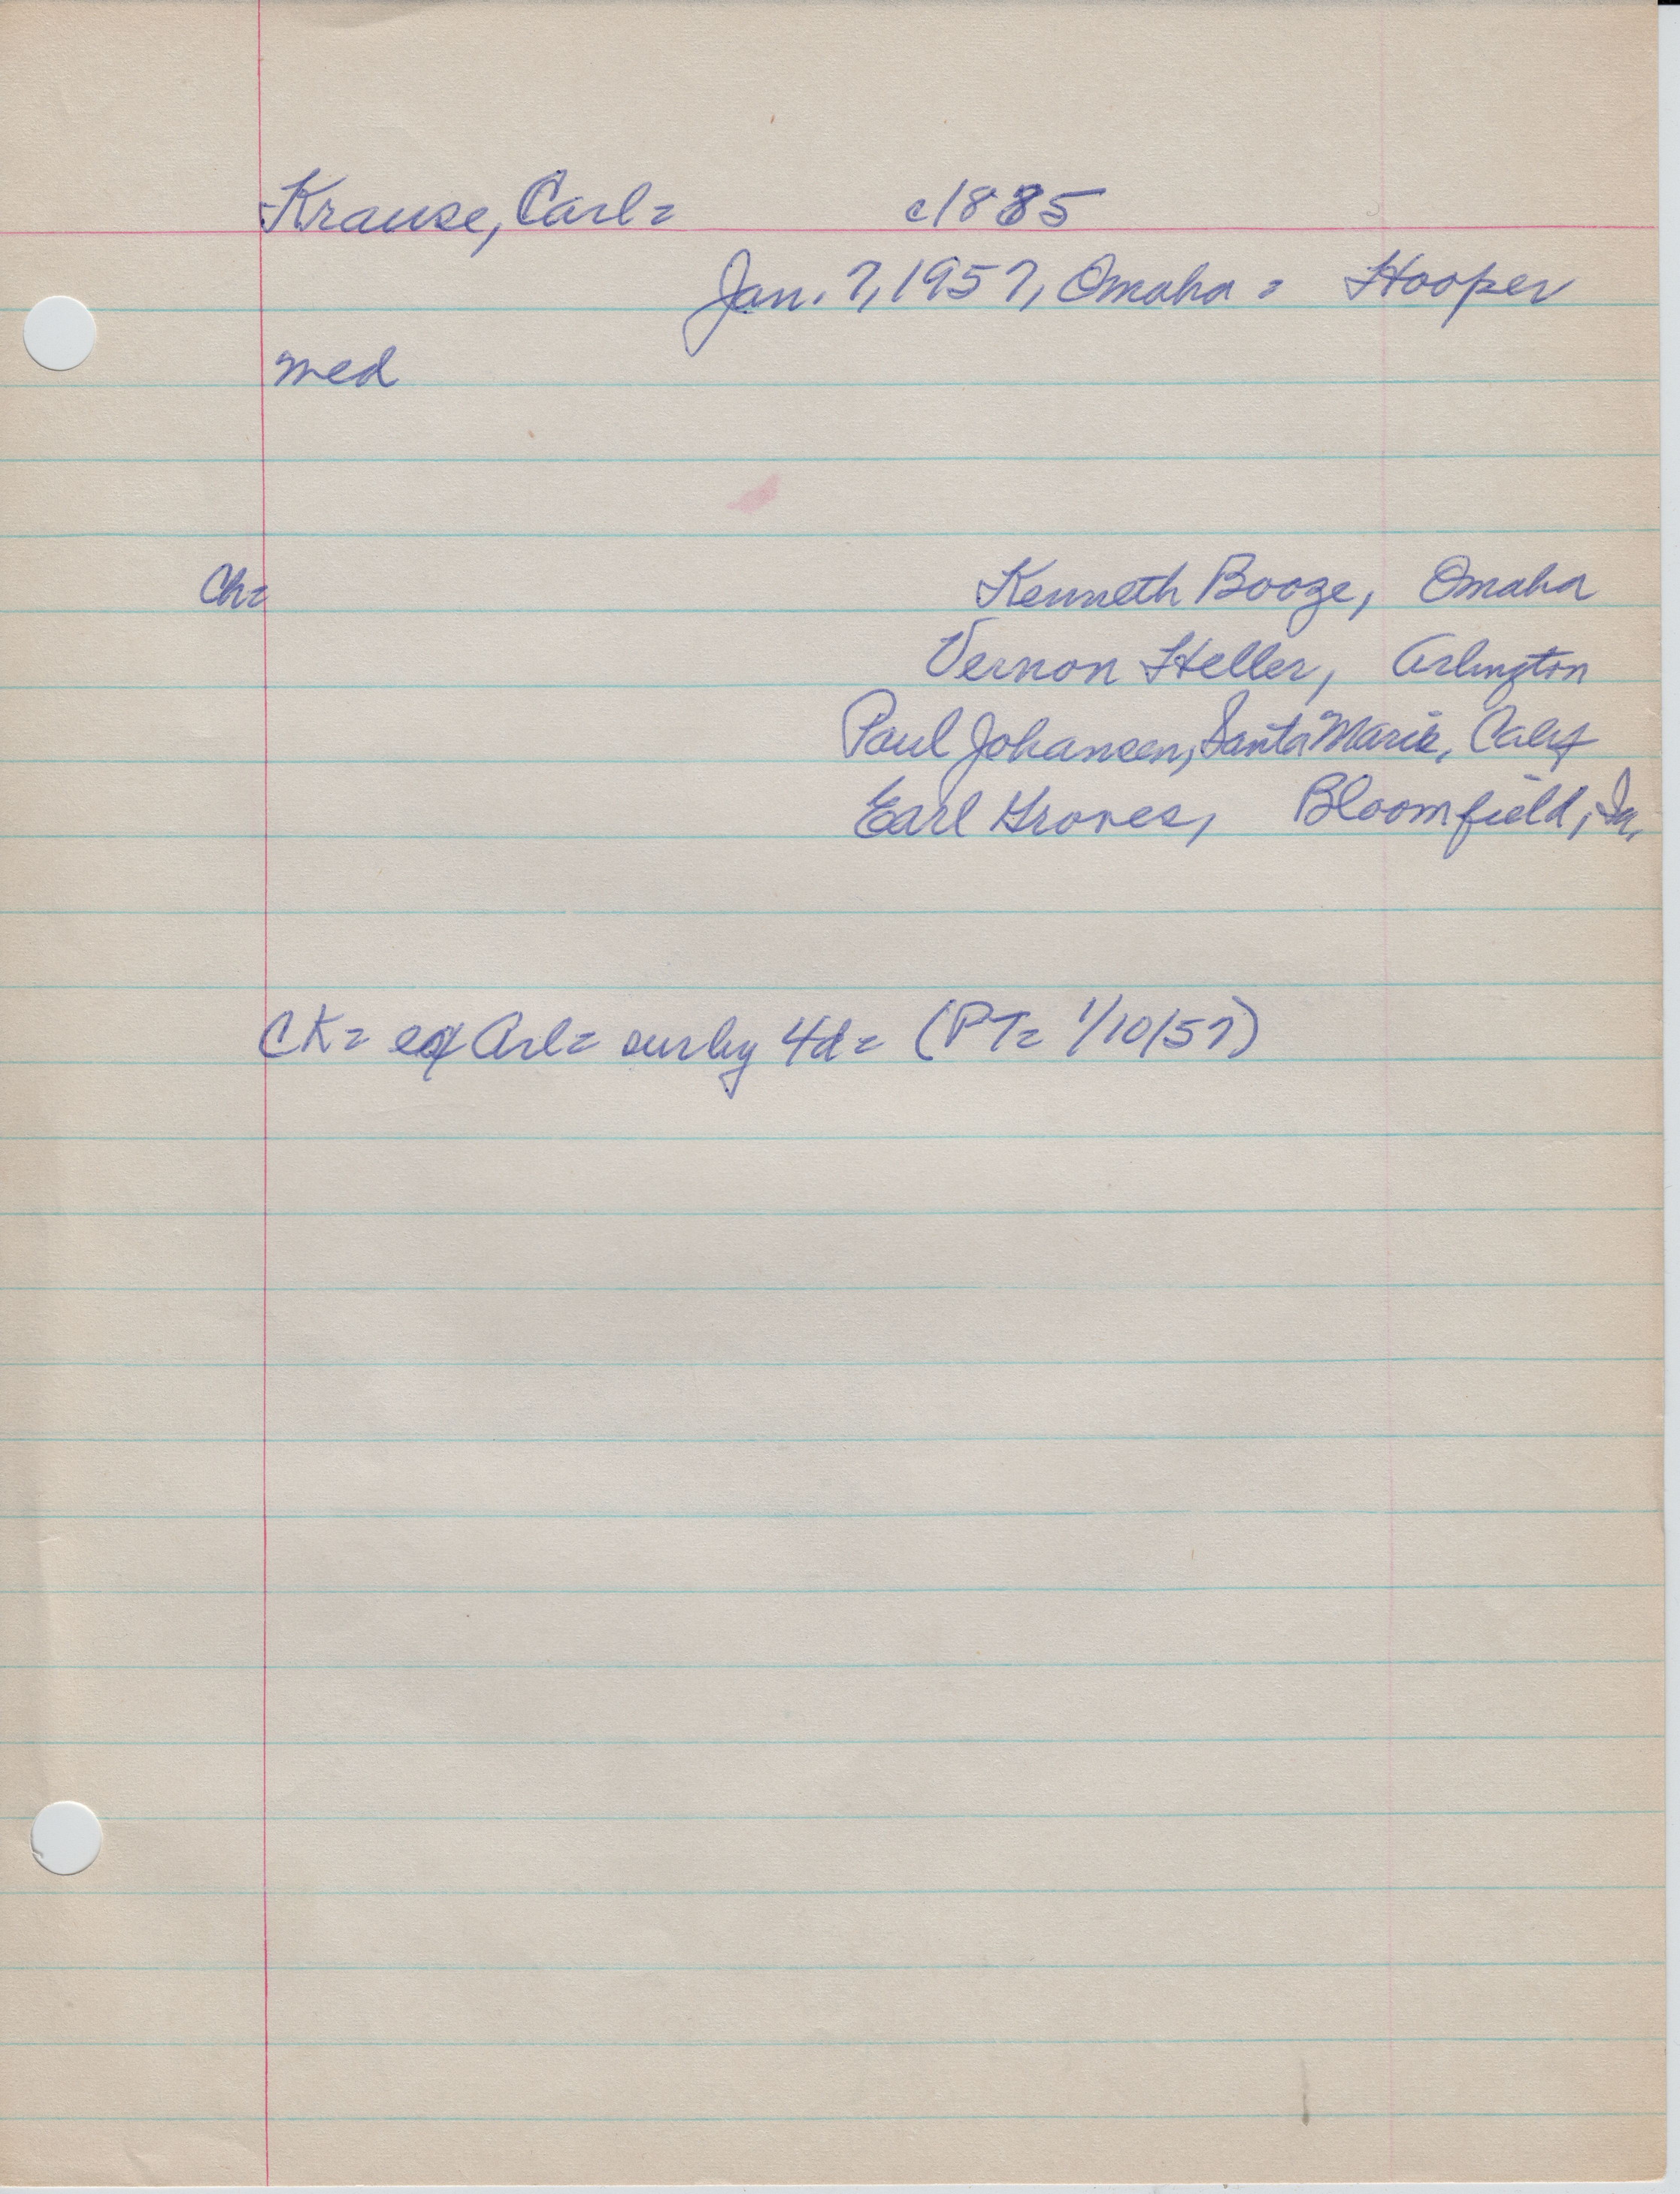 Krause, Carl= c1885
Jan. 7, 1957, Omaha = Hooper
med
Ch= Kenneth Booze, Omaha
Vernon Heller, Arlington
Paul Johansen, Santa Marie, Calif
Earl Groves, Bloomfield, Ia.
CK= Arl= sur by 4d= (PT= 1/10/57)